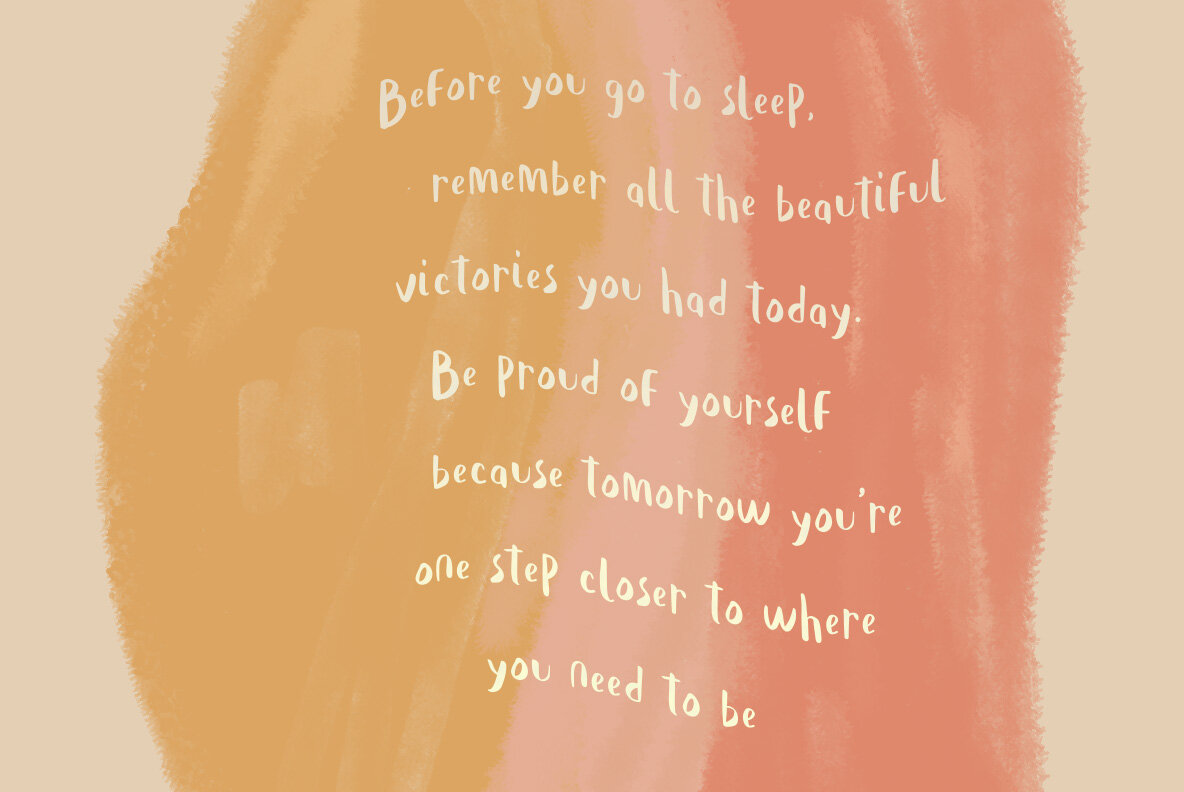 Before you go to sleep,
remember all the beautiful
victories you had today.
Be proud of yourself
because tomorrow you're
one step closer to where
you need to be